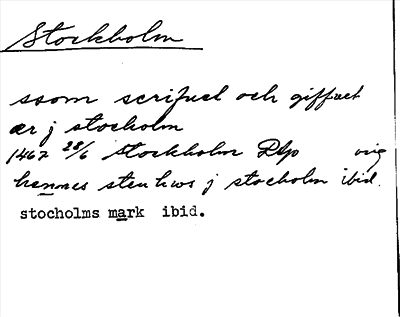 Stockholm
ssom scrifuel och giffuet
ær j stocholm
1467 28/6 Stockholm Dtp orig
hennes stenhws j stocholm ibid.
stocholms mark ibid.